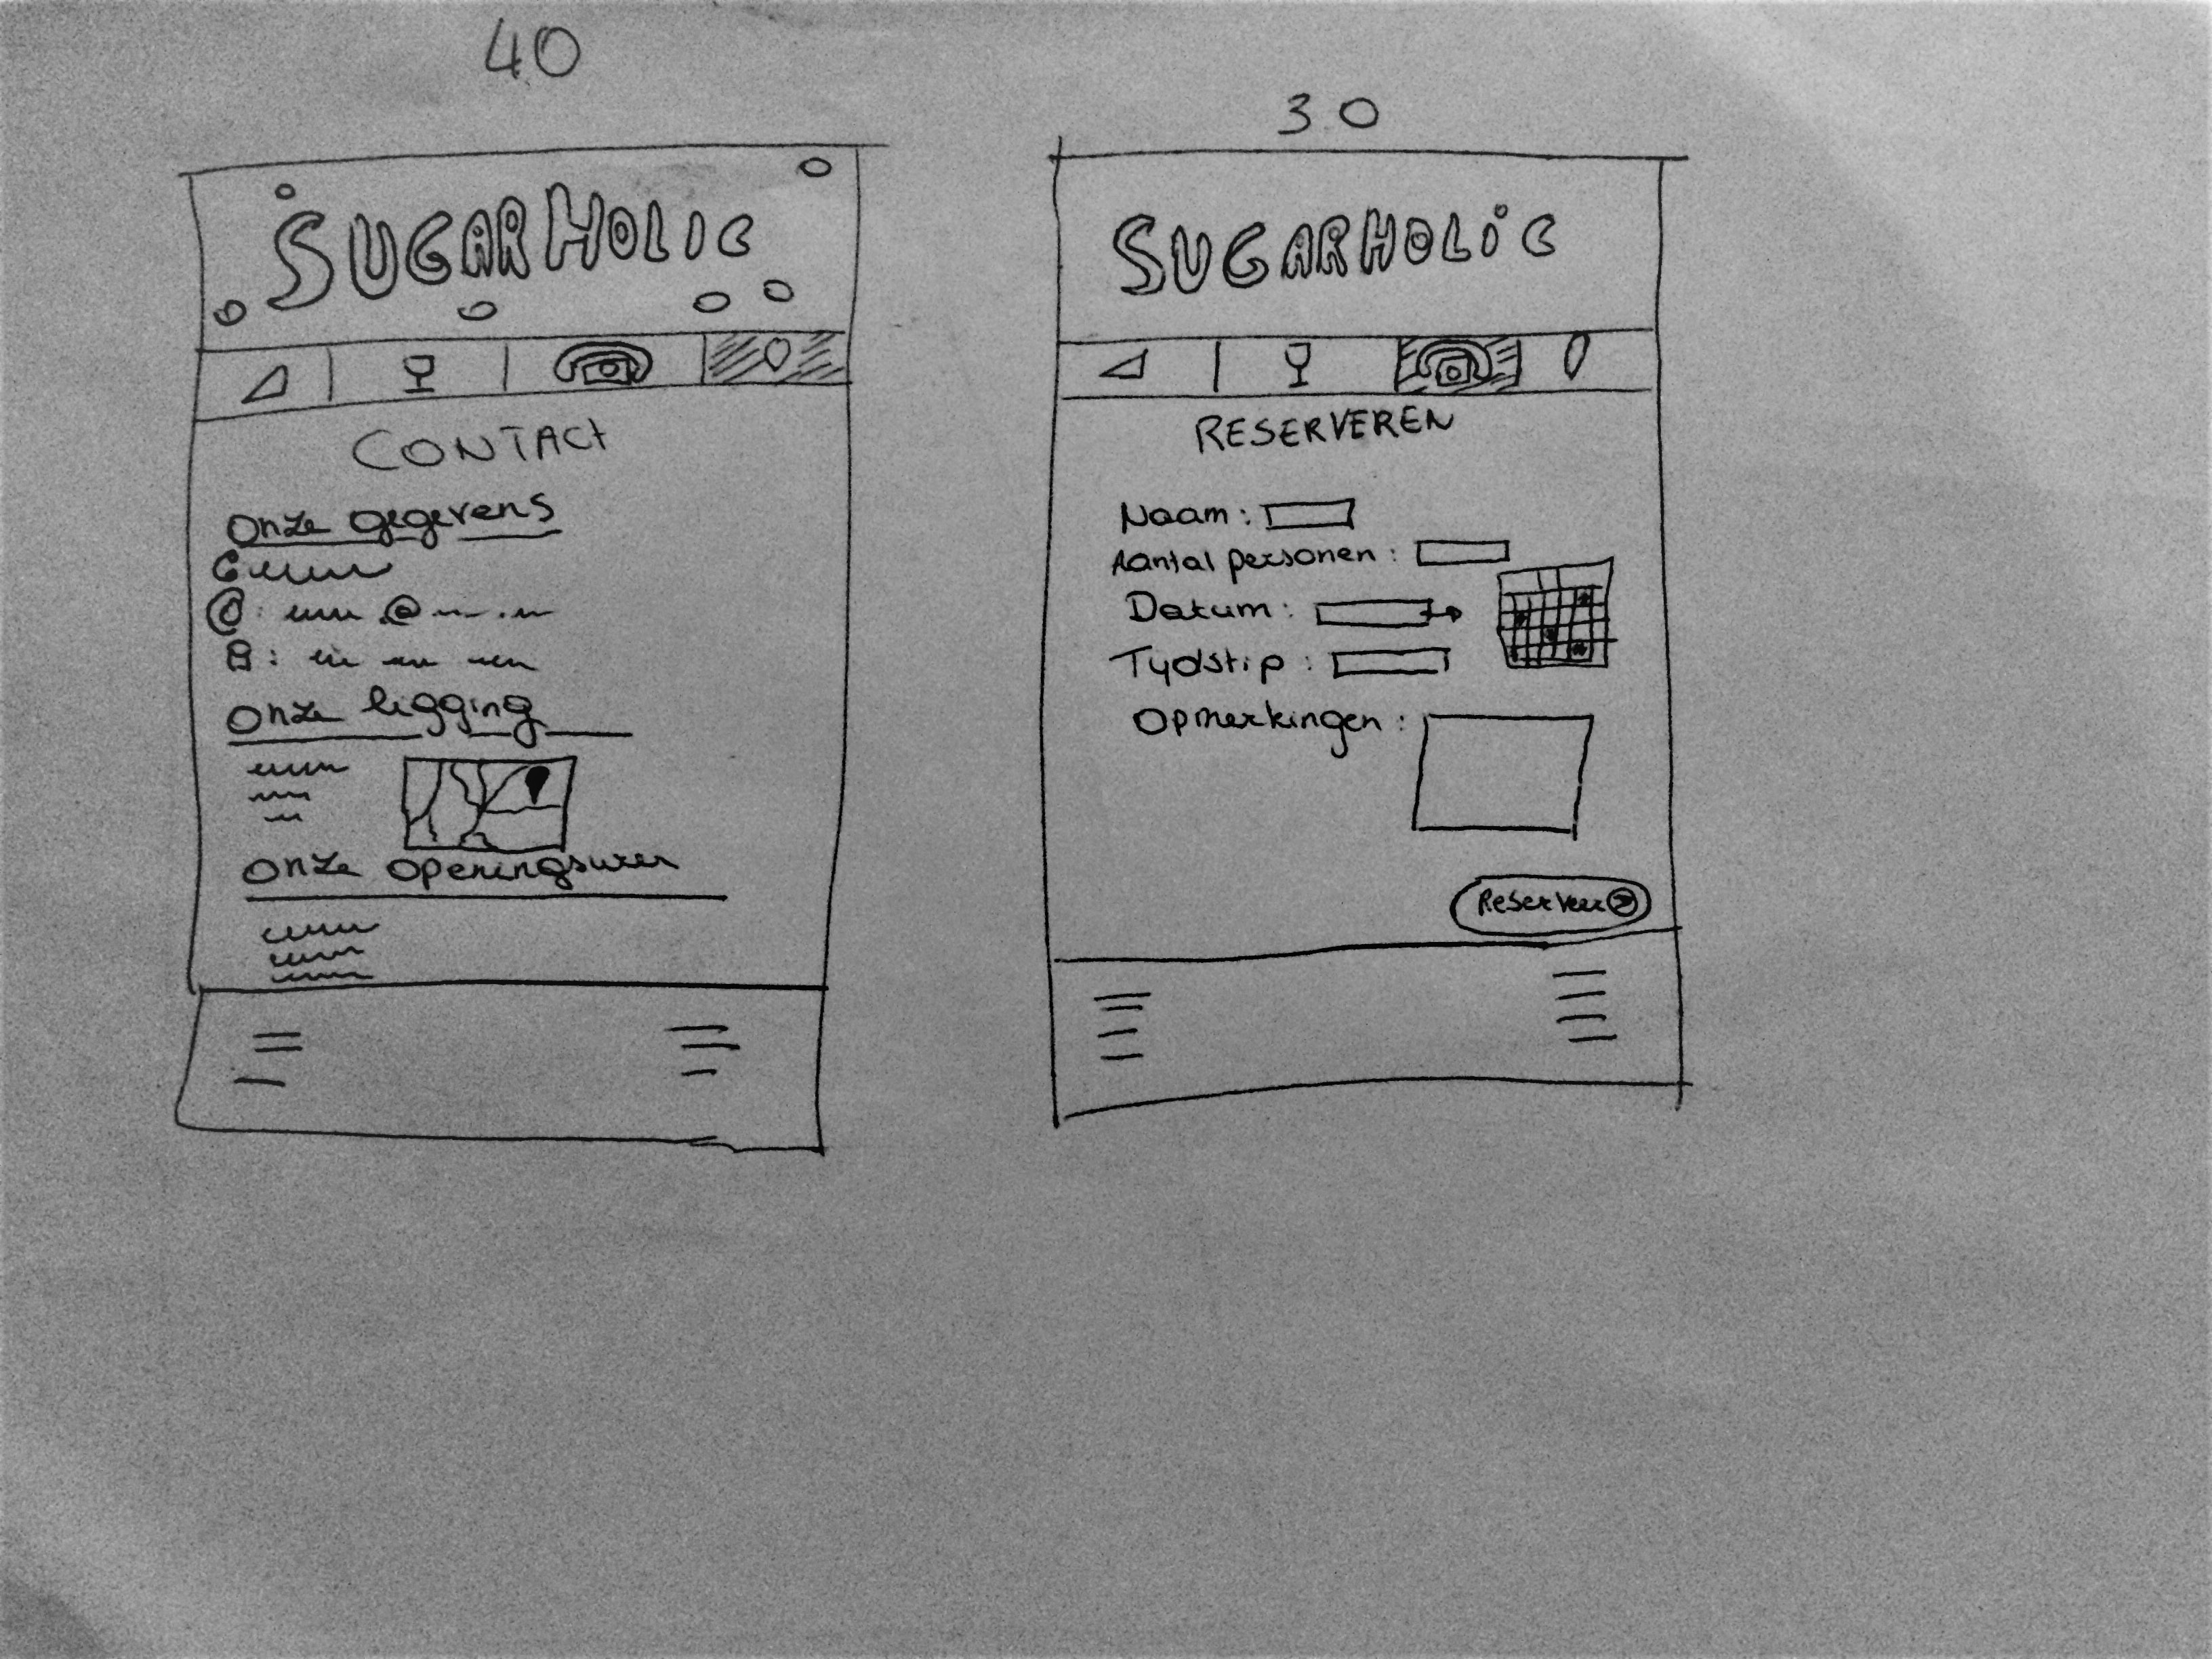 40
SUGARHOLIC
CONTACT
Onze gegevens
@: @ .
Onze ligging
Onze Openingsuren
30
SUGARHOLiC
RESERVEREN
Naam:
Aantal personen:
Datum:
Tydstip:
Opmerkingen:
Reserveer